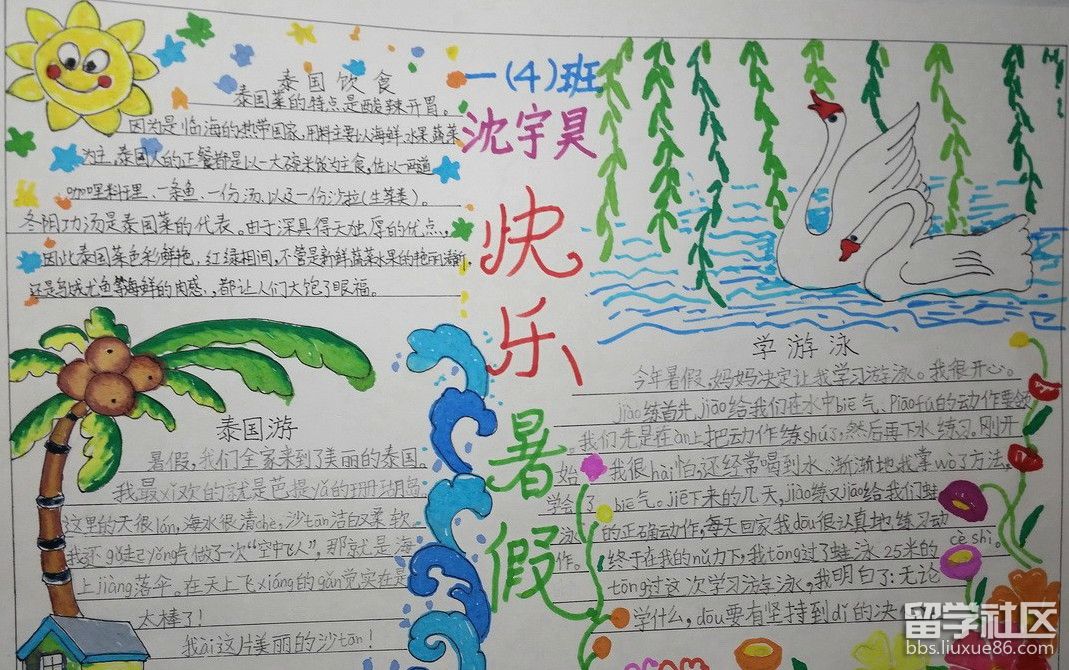 泰国饮食
泰国菜的特点是酸辣开胃。
因为是临海的热带国家,用料主要以海鲜水果蔬菜
为主,泰国人的正餐都是以一大碗米饭为主食,佐以一两道
咖哩料理、一条鱼、一份汤、以及一份沙拉(生菜类)。
冬阴功汤是泰国菜的代表。由于深具得天独厚的优点,
因此泰国菜色彩鲜艳,红绿相间,不管是新鲜蔬菜水果的艳丽清新,
还是鱿鱼等海鲜的肉感,都让人们大饱了眼福。
泰国游
暑假,我们全家来到了美丽的泰国。
我最xǐ欢的就是芭提yǎ的珊瑚岛
这里的天很lán,海水很清chè,沙tān洁白又柔软
我还gǔ起yǒng气做了一次“空中飞人”,那就是海
上jiàng落伞。在天上飞xiáng的gǎn觉实在是
太棒了!
我ài这片美丽的沙tān!
一(4)班
沈宇昊
快乐暑假
学游泳
今年暑假,妈妈决定让我学习游泳。我很开心。
jiào练首先jiāo给我们在水中biē气、piāo fú的动作要领
我们先是在àn上把动作练shú了,然后再下水练习。刚开
始,我很hài怕,还经常喝到水。渐渐地我掌wò了方法,
学会了biē气。jiē下来的几天,jiào练又jiāo给我们蛙
泳的正确动作,每天回家我dōu很认真地练习动
作。终于在我的nǔ力下,我tōng过了蛙泳25米的cè shì。
tōng过这次学习游泳,我明白了:无论
学什么,dōu要有坚持到dǐ的决
留学社区
bbs.liuxue86.com